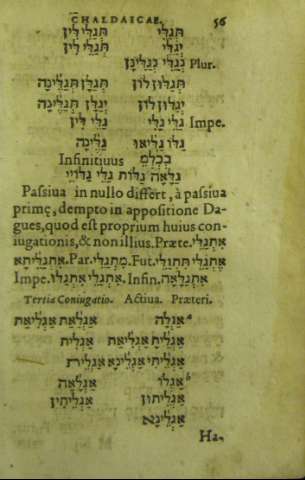 CHALDAICAE. 56
תְּגַלִּי תְּגַלִּי לִין
יְגַלִּי תְּגַלִּי לִין
נְגַלִּי נְגַלִּינָן Plur.
תְּגַלּוּן לוּן תְּגַלָּן תְּגַלֶּינָה
יְגַלּוּן לוּן יְגַלָּן תְּגַלֶּינָה
גַּלִּי גַּלִּי גַּלִּי לִין Impe.
גַּלּוֹ גַּלִּיאוּ גַּלֶּינָה
Infinitiuus
גַּלָּאָה גַּלּוֹת גַּלִּי
Passiua in nullo differt, à passiua
primę, dempto in appositione Da-
gues, quod est proprium huius con-
iugationis, & non illius. Præte. אִתְגַּלִּי
Fut. מִתְגַּלִּי Par.
Impe. אִתְגַּלִּי אִתְגַּלּוֹ Infin. אִתְגַּלָּאָה
Tertia Coniugatio. Actiua. Præteri.
אַגְלָה אַגְלָאת אַגְלִיאַת
אַגְלִית אַגְלִיאַת אַגְלִית
אַגְלִיתִי אַגְלִינָא אַגְלִית
אַגְלוֹ אַגְלָאָה
אַגְלִיתוּן אַגְלִיתִין
אַגְלִינָא
Ha-